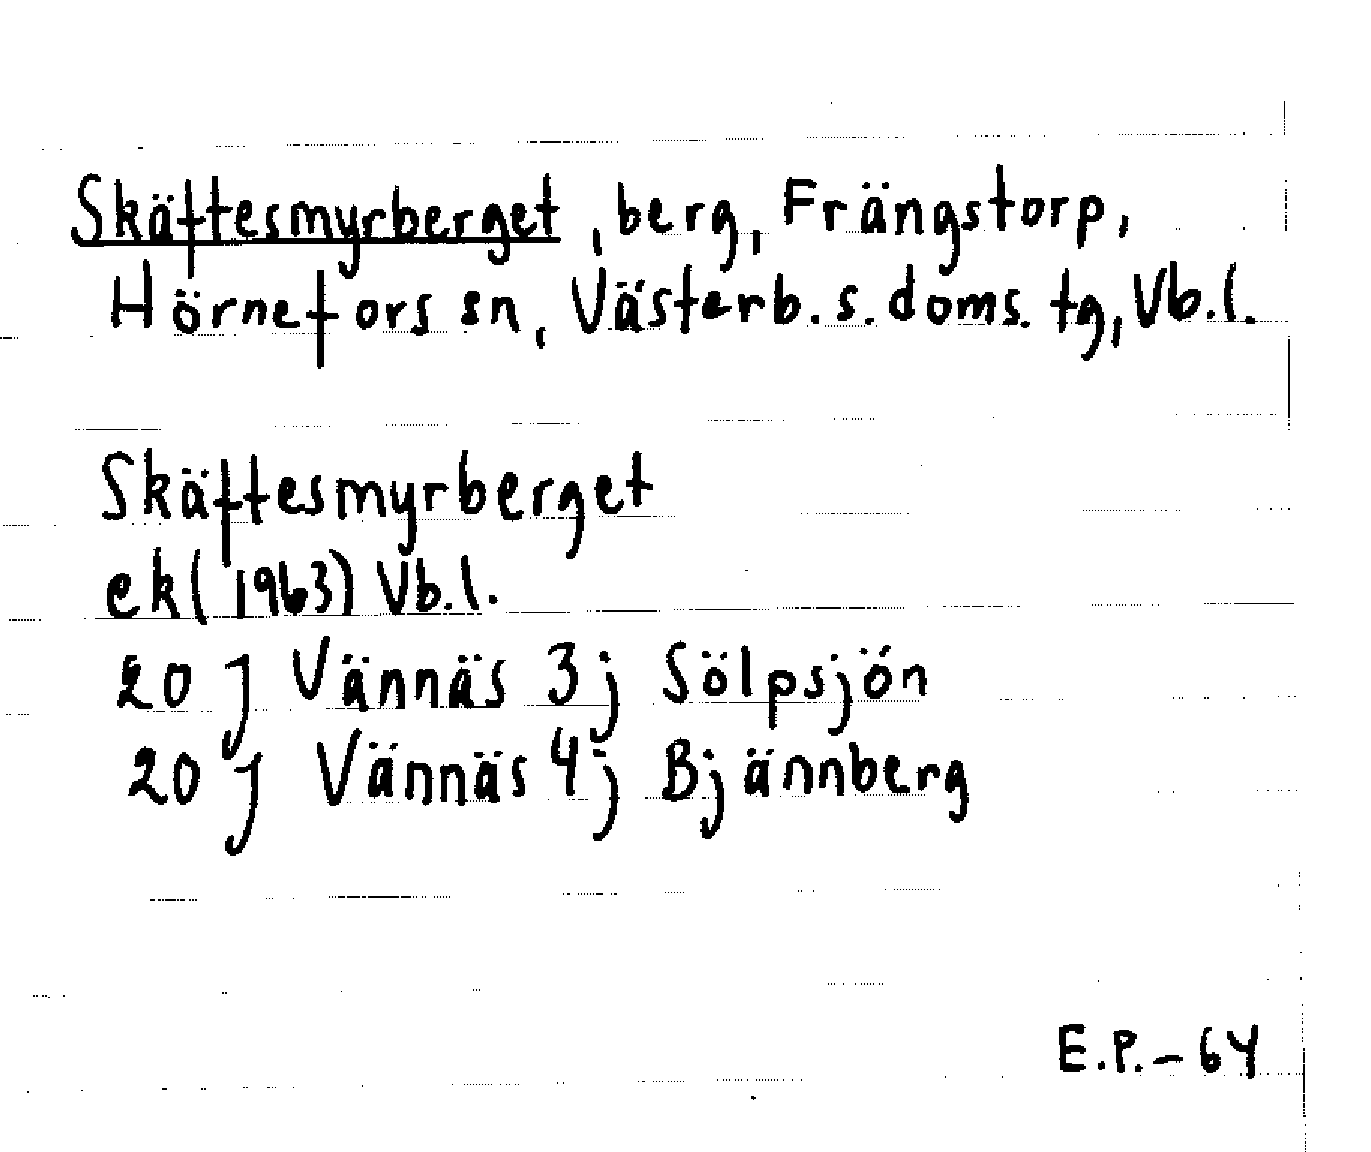 Skäftesmyrberget, berg, Frängstorp,
Hörnefors sn, Västerb. s. doms. tg, Vb.l.
Skäftesmyrberget
ek (1963) Vb.l.
20 J Vännäs 3j Sölpsjön
20 J Vännäs 4j Bjännberg
E.P.-64